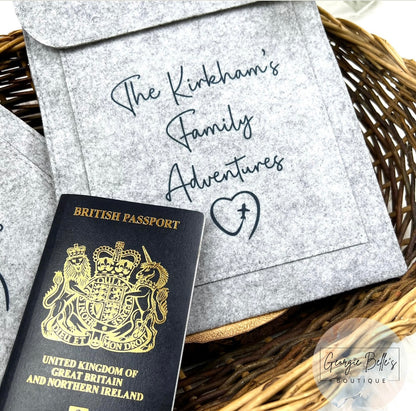 The Kirkham's
Family
Adventures
BRITISH PASSPORT
DIEU ET MON DROIT
UNITED KINGDOM OF
GREAT BRITAIN
AND NORTHERN IRELAND
Georgie Belle's
BOUTIQUE